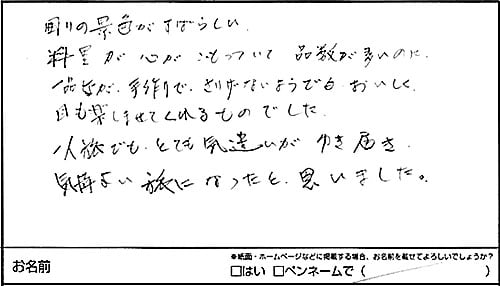 周りの景色がすばらしい
料理が心がこもっていて 品数が多いのに、
一品一品が、手作りで、さりげないようでも おいしく、
目も楽しませてくれるものでした。
一人旅でも、とても気遣いがゆき届き、
気持よい旅になったと、思いました。
お名前
※紙面・ホームページなどに掲載する場合、お名前を載せてよろしいでしょうか?
□はい □ペンネームで ( )